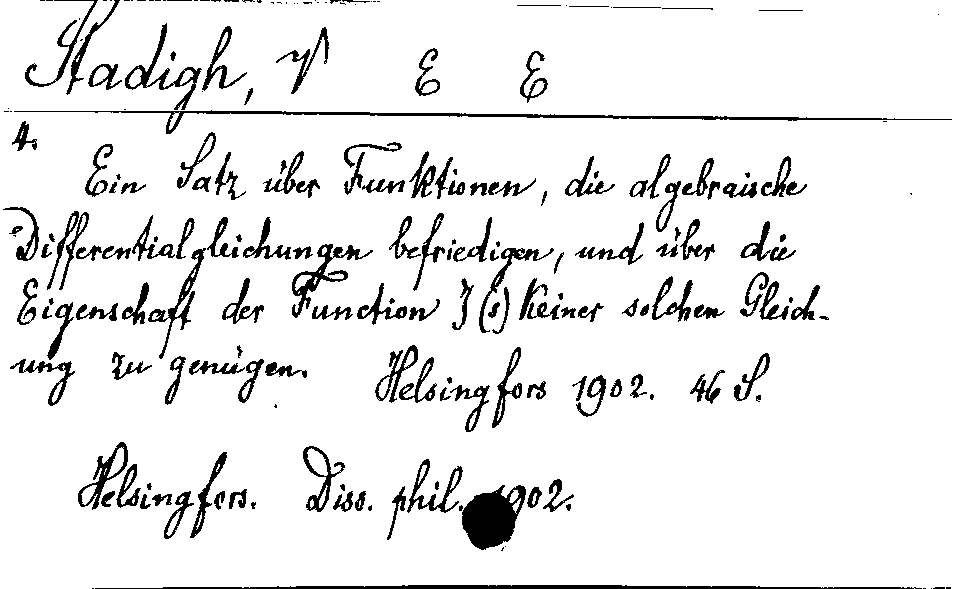 Stadigh, V E E
4.
Ein Satz über Funktionen, die algebraische
Differentialgleichungen befriedigen, und über die
Eigenschaft der Function ζ(s) keiner solchen Gleich-
ung zu genügen. Helsingfors 1902. 46 S.
Helsingfors. Diss. phil. 1902.